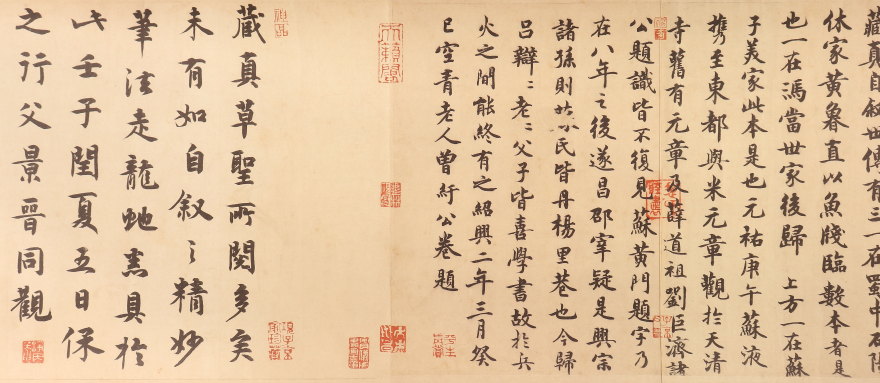 藏真自叙世傳有三一在蜀中石陽
休家黃魯直以魚牋臨數本者是
也一在馮當世家後歸 上方一在蘇
子美家此本是也元祐庚午蘇液
攜至東都與米元章觀於天清
寺舊有元章及薛道祖劉巨濟諸
公題識皆不復見蘇黃門題字乃
在八年之後遂昌邵宰疑是興宗
諸孫則 民皆丹楊里巷也今歸
呂辯二老二父子皆喜學書故於兵
火之間能終有之紹興二年三月癸
巳空青老人曾紆公卷題
藏真草聖所閱多矣
未有如自叙之精妙
筆法走龍虵悉具於
此壬子閏夏五日保
之行父景晉同觀